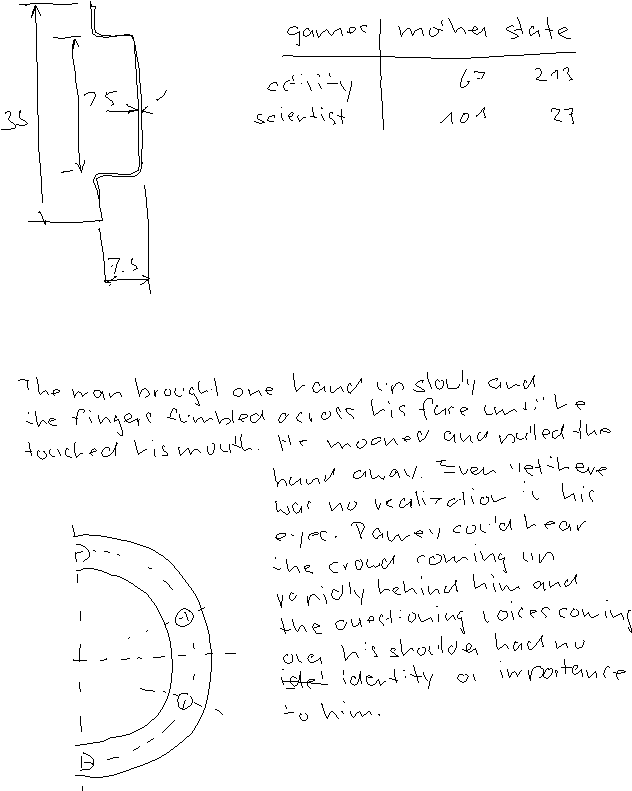 games mother state
activity 67 213
scientist 101 27
35
75
7.5
The man brought one hand up slowly and
the fingers fumbled across his face until he
touched his mouth. He moaned and pulled the
hand away. Even yet there
was no realization in his
eyes. Barney could hear
the crowd coming up
rapidly behind him and
the questioning voices coming
over his shoulder had no
identity or importance
to him.